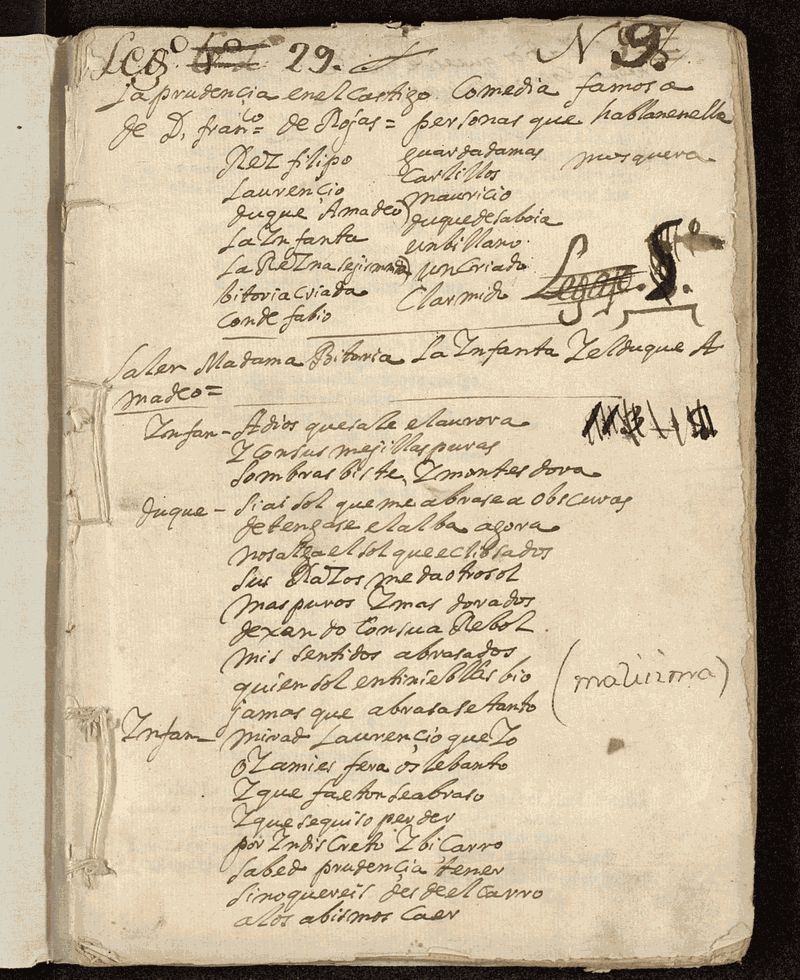 Leg.º 29. N 9.
La prudençia enel Castigo. Comedia famosa
de D. franco = de Rojas = personas que hablanenella
Rey filipo
Laurençio
duque Amadeo
La Ynfanta
La Reyna sejismunda
bitoria Criada
Conde fabio
guardadamas
Carlillos
mauricio
duquedesaboia
unbillano
UnCriado
Clarmido
mosquera
Legajo. 5.º
Salen Madama Bitoria La Ynfanta Yelduque A
madeo =
Ynfan - Adios quesale elaurora
YConsus mejillaspuras
Sombras biste, Ymontes dora
duque - Siai sol que me abrasea obscuras
detengase elalba agora
nosalga el sol queeclibsados
Sus Rayos medaotrosol
maspuros Ymas dorados
dexando Consua Rebol
mis sentidos abrasados
quiensol entinieblas bio
jamas que abrasasetanto
(malisima)
Ynfan - mirad Laurençio queYo
oYamies fera os lebanto
Yque faeton seabraso
Yquesequiso perder
por Yndiscreto Ybiçarro
sabed prudençia tener
sinoquereis desdeelCarro
alos abismos Caer